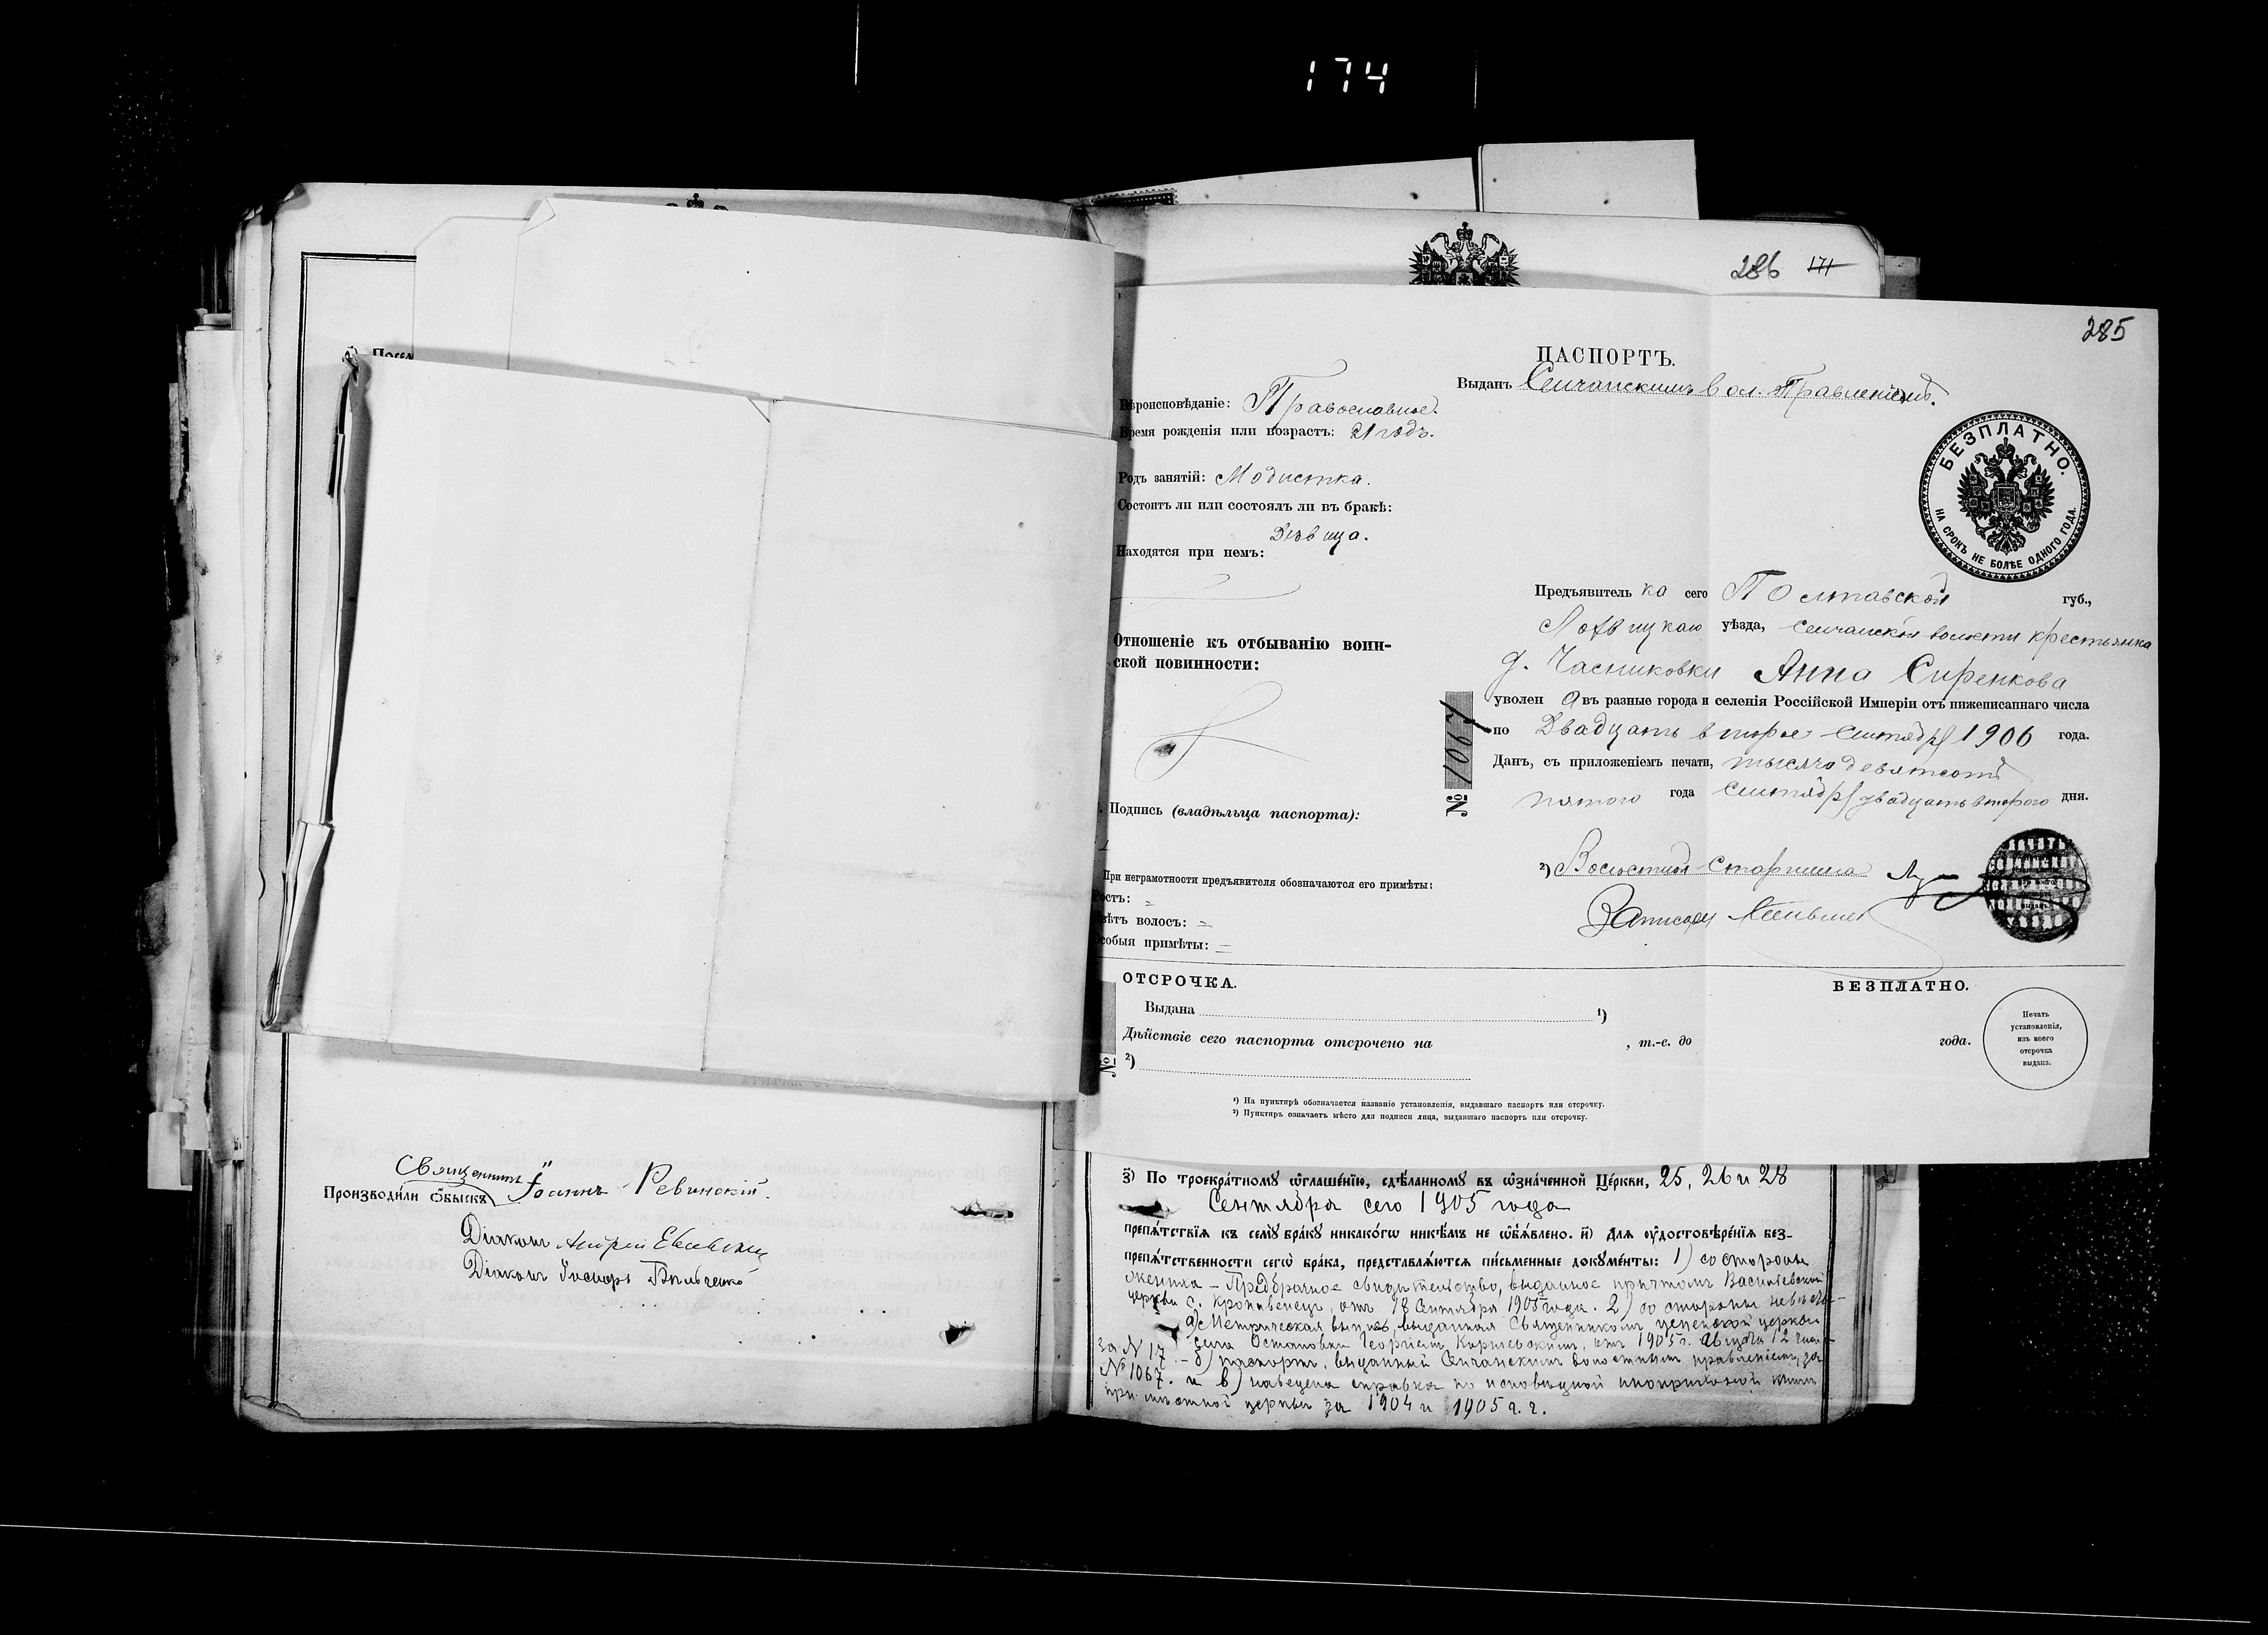 174
286 171
285
Посл
Производи́ли ѻ҆́быскъ Священникъ Іоаннъ Ревинскій.
Діаконъ Андрей
Діаконъ
ПАСПОРТЪ.
Выданъ Сенчанскимъ Вол. Правленіемъ.
Вѣроисповѣданіе: Православное.
Время рожденія или возрастъ: 21 годъ.
Родъ занятій: Модистка.
Состоитъ ли или состоялъ ли въ бракѣ:
Дѣвица.
Находятся при немъ:
Отношеніе къ отбыванію воин-
ской повинности:
Подпись (владѣльца паспорта):
При неграмотности предъявителя обозначаются его примѣты:
Ростъ: =
Цвѣтъ волосъ: =
Особыя примѣты: =
БЕЗПЛАТНО.
НА СРОКЪ НЕ БОЛѢЕ ОДНОГО ГОДА.
Предъявитель ка сего Полтавской губ.,
Лохвицкаго уѣзда, Сенчанской волости крестьянка
д. Часниковки Анна Сиренкова
уволен а въ разные города и селенія Россійской Имперіи отъ нижеписаннаго числа
по Двадцать второе Сентября 1906 года.
Данъ, съ приложеніемъ печати, тысяча девятсотъ
пятого года Сентября двадцать второго дня.
№ 1067
²) Волостной Старшина
ОТСРОЧКА.
БЕЗПЛАТНО.
Выдана ¹)
Дѣйствіе сего паспорта отсрочено на , т.-е. до года.
№ ²)
Печать
установленія,
изъ коего
отсрочка
выдана.
¹) На пунктирѣ обозначается названіе установленія, выдавшаго паспортъ или отсрочку.
²) Пунктиръ означаетъ мѣсто для подписи лица, выдавшаго паспортъ или отсрочку.
з҃) По троекра́тномꙋ ѡ҆глаше́нїю, сдѣ́ланномꙋ въ ѡ҆зна́ченной Це́ркви, 25, 26 и 28
Сентября сего 1905 года
препѧ́тствїѧ къ семꙋ̀ бра́кꙋ никако́гѡ никѣ́мъ не ѡ҆б̾ѧ́влено. и҃) Для ᲂу҆достовѣре́нїѧ без-
препѧ́тственности сегѡ̀ бра́ка, представлѧ́ютсѧ пи́сьменные докꙋме́нты: 1) со стороны
жениха – Предбрачное свидѣтельство, выданное причтомъ Васильевской
церкви с. Кропивенецъ, отъ 18 Сентября 1905 года. 2) со стороны невѣсты –
а) Метрическая выпись, выданная Священникомъ Успенской церкви
села Остаповки Георгіемъ отъ 1905 г. Августа 12 числа
за № 17 – б) паспортъ, выданный Сенчанскимъ волостнымъ правленіемъ, за
№ 1067. и в) наведена справка по исповѣдной иноприхожей книгѣ
при мѣстной церкви за 1904 и 1905 г.г.